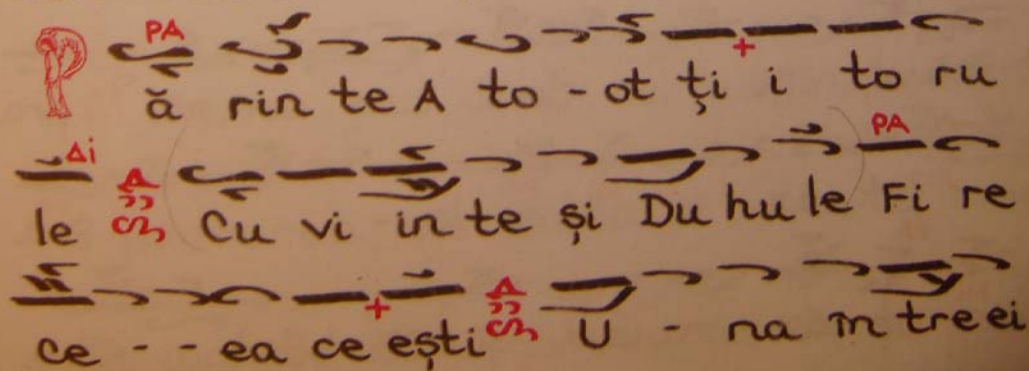 PA
P ă rin te A to - ot ţi i to ru
Δi PA
le Cu vi in te şi Du hu le Fi re
ce - - ea ce eşti U - na în tre ei